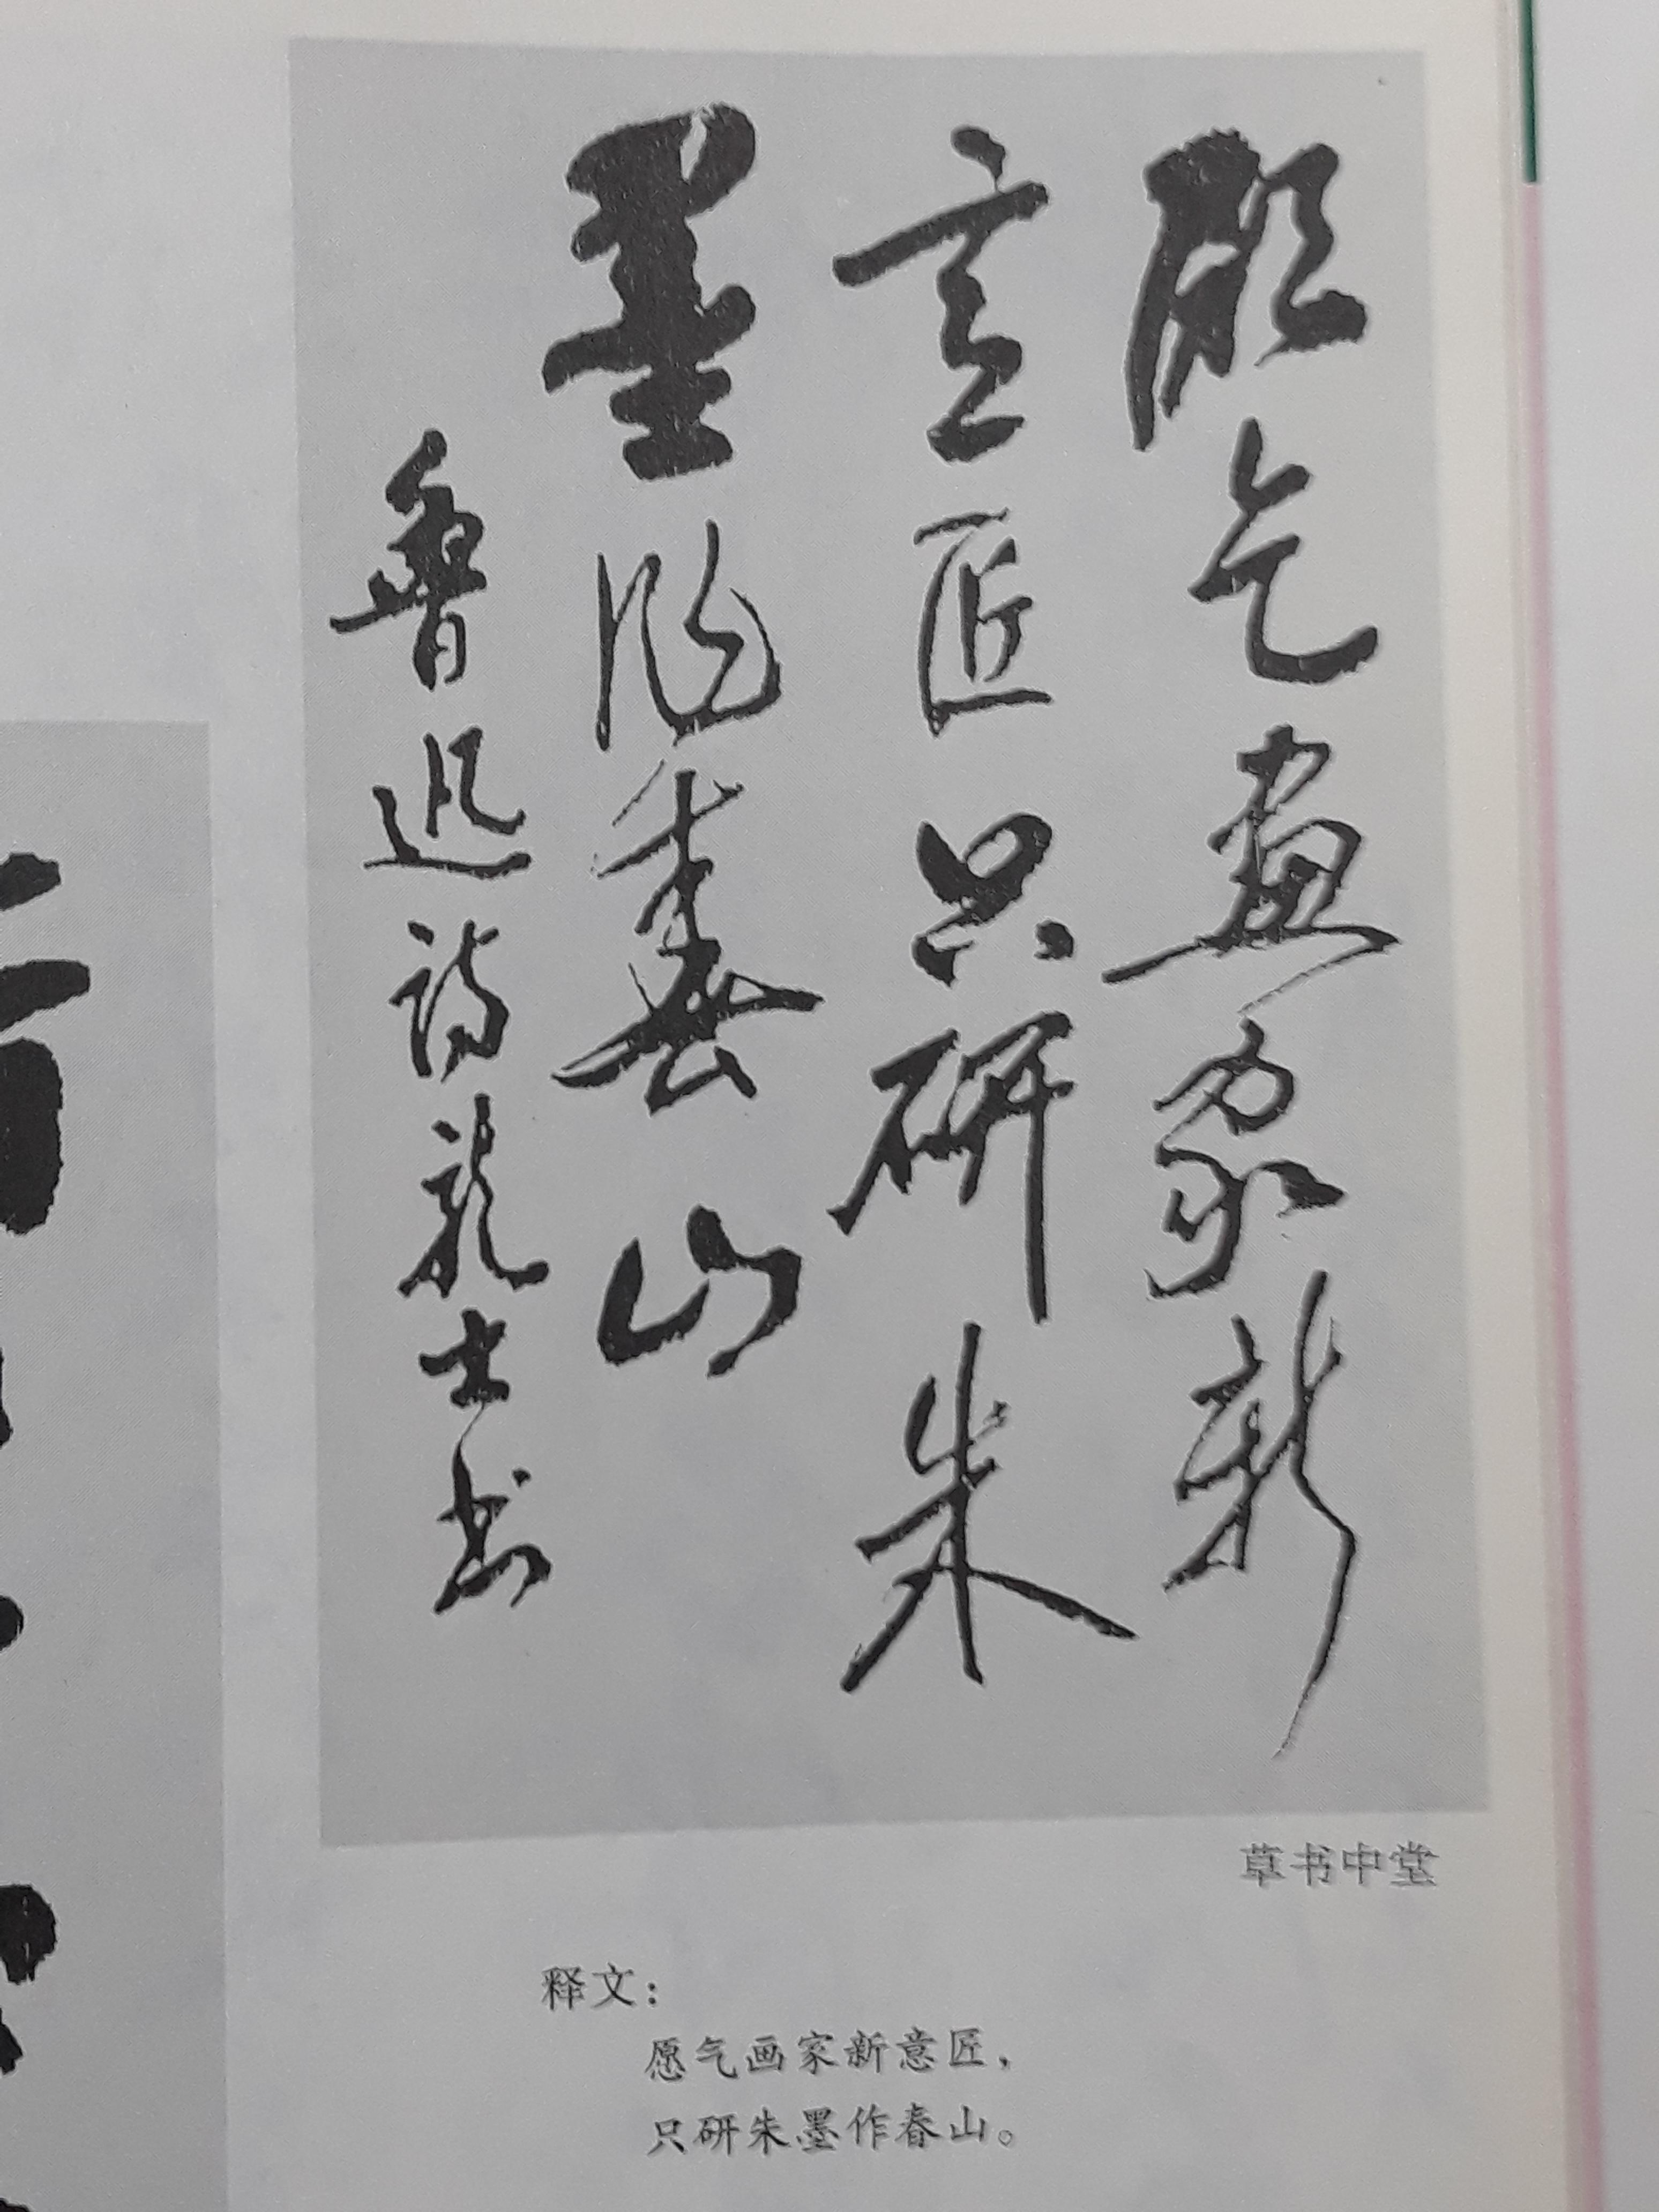 愿乞画家新
意匠只研朱
墨作春山
鲁迅诗龙士书
草书中堂
释文：
愿气画家新意匠，
只研朱墨作春山。